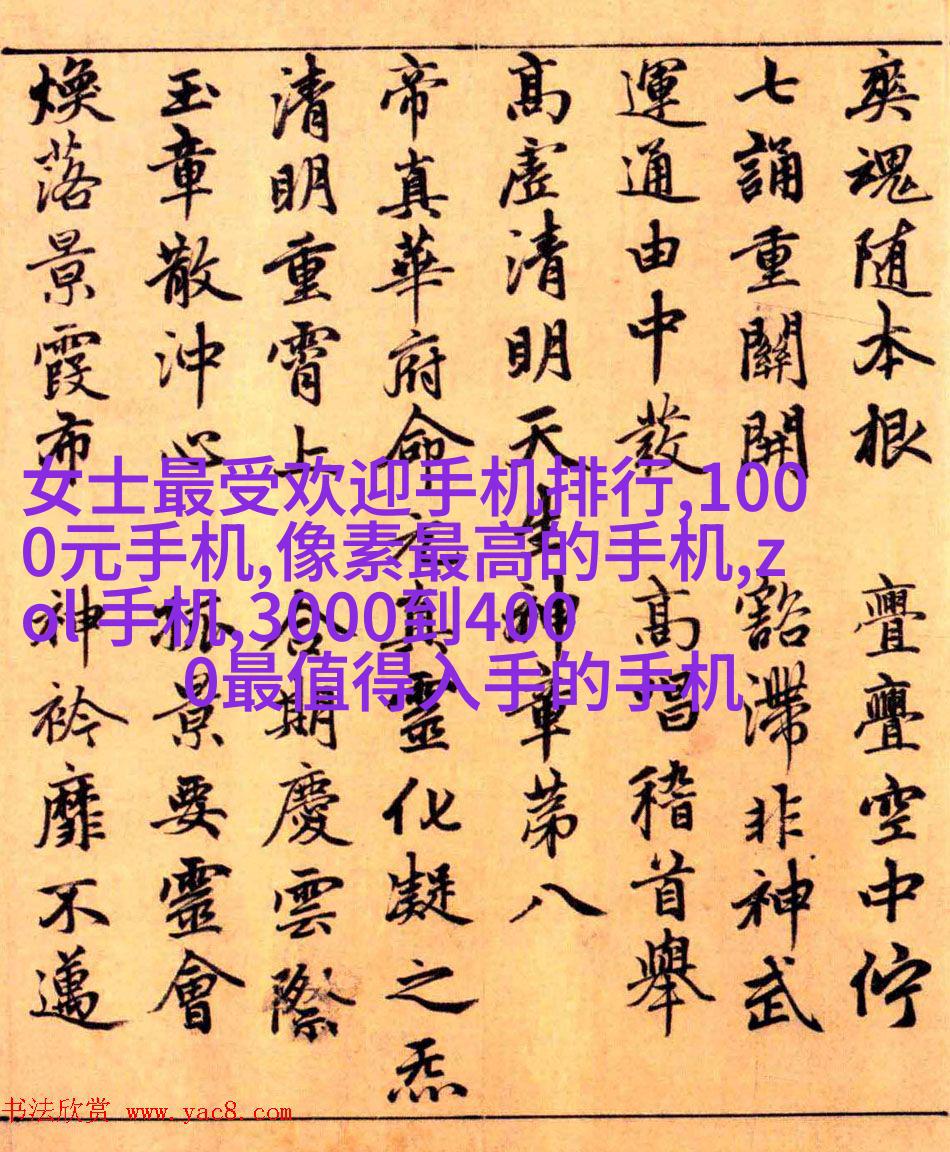 爽魂随本根 亹亹空中佇
七誦重關開 豁滯非神武
運通由中發 高唱稽首舉
高虛清明天生神章苐八
帝真華府命元真靈化凝之炁
清明重霄上 合期慶雲際
玉章散沖心 孤景要靈會
煥落景霞布 神衿靡不邁
女士最受欢迎手机排行,100
0元手机,像素最高的手机,z
ol手机,3000到400
0最值得入手的手机
书法欣赏 www.yac8.com